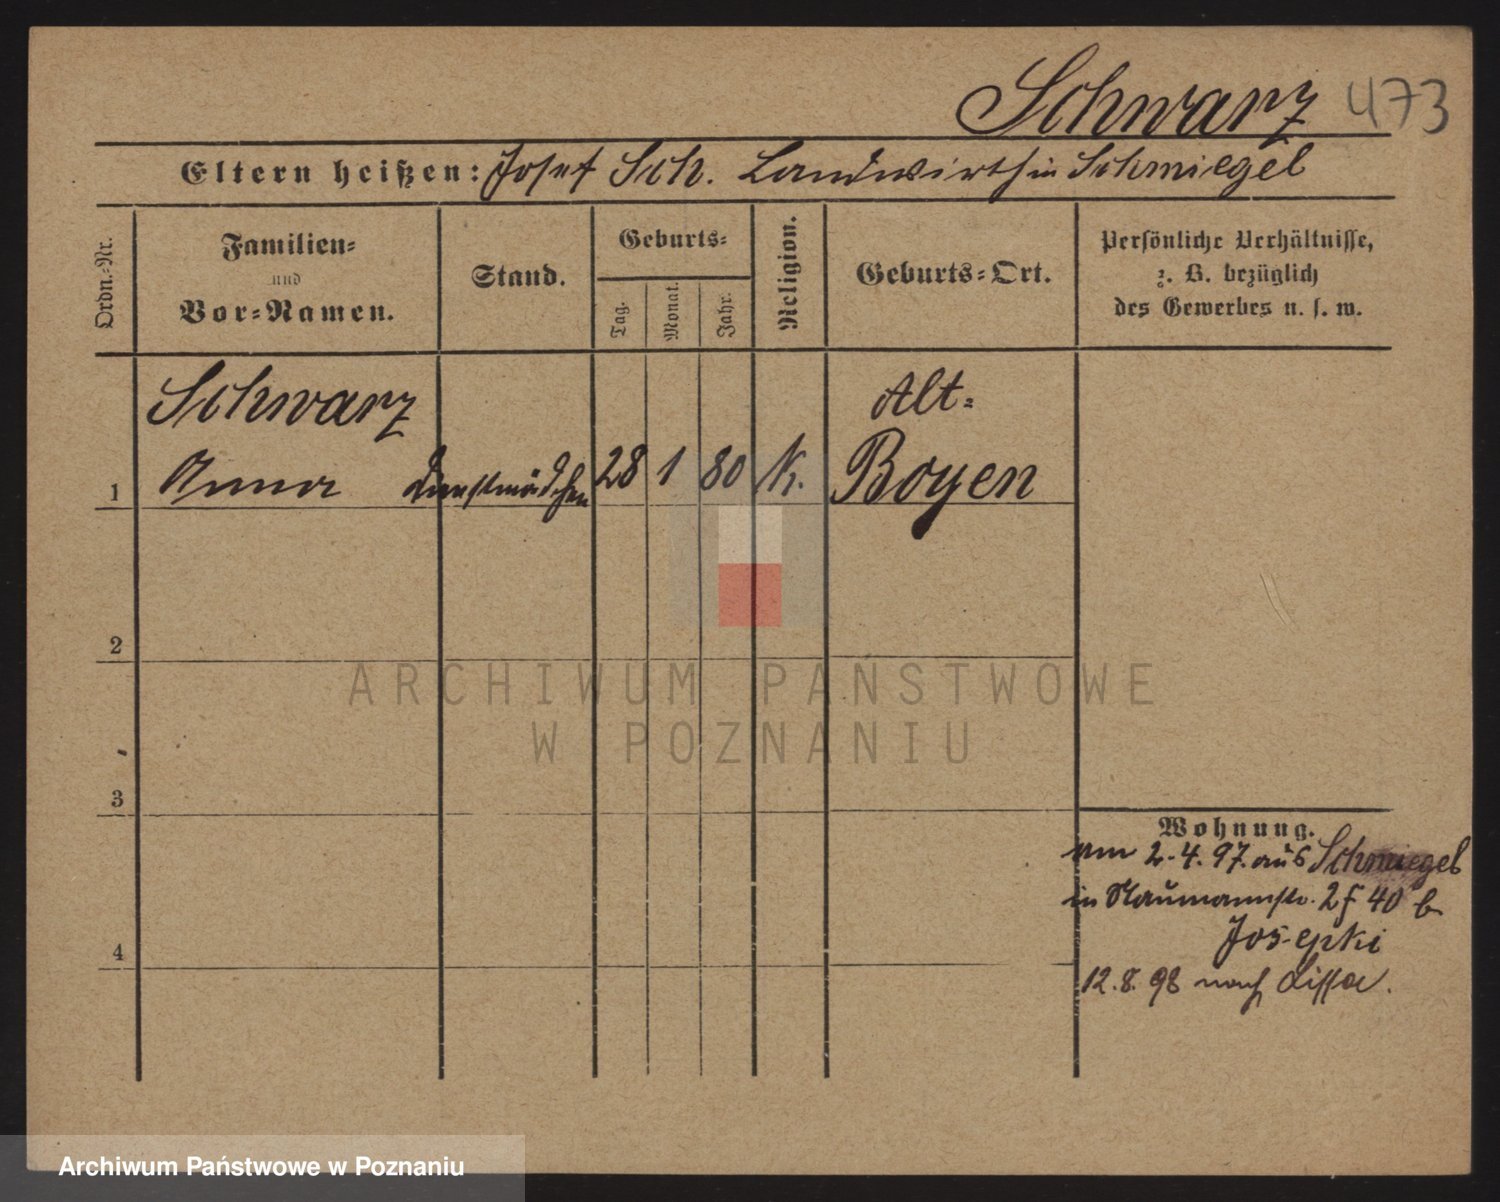 Schwarz 473
Eltern heißen: Josef Sch. Landwirth in Schmiegel
Ordn.-Nr.
Familien-
und
Vor-Namen.
Stand.
Geburts-
Tag.
Monat.
Jahr.
Religion.
Geburts-Ort.
Persönliche Verhältnisse,
z. B. bezüglich
des Gewerbes u. s. w.
Schwarz
Alt-
1 Anna Dienstmädchen 28 1 80 K. Boyen
2
3
4
Wohnung.
am 2.4.97. aus Schmiegel
in Naumannstr. 2 f 40 b
Josepki
12.8.98 nach Lissa.
ARCHIWUM PAŃSTWOWE
W POZNANIU
Archiwum Państwowe w Poznaniu